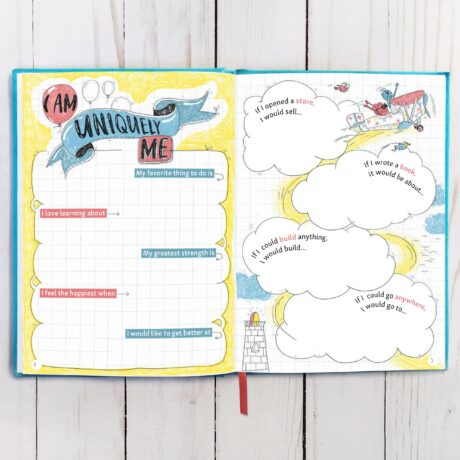 I AM
UNIQUELY
ME
My favorite thing to do is
I love learning about
My greatest strength is
I feel the happiest when
I would like to get better at
If I opened a store,
I would sell...
If I wrote a book,
it would be about...
If I could build anything,
I would build...
If I could go anywhere,
I would go to...